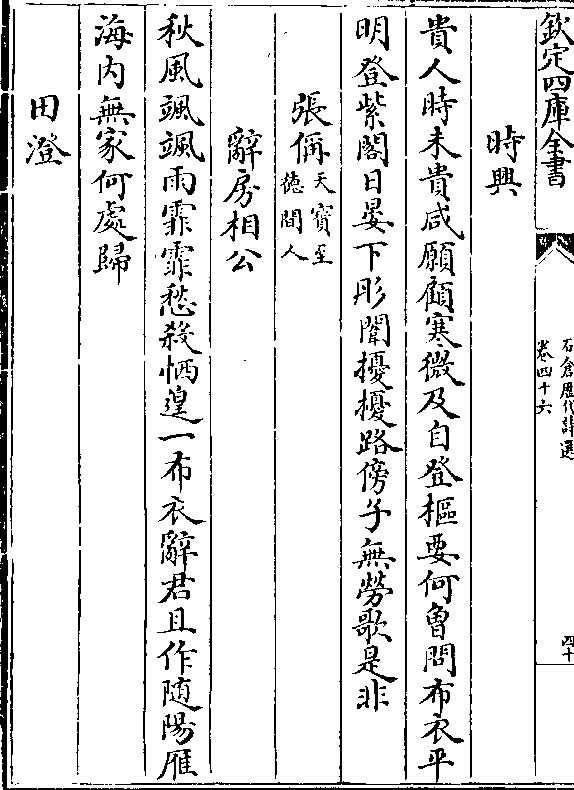 欽定四庫全書
石倉歴代詩選
卷四十六
四十
時興
貴人時未貴咸願顧寒微及自登樞要何曾問布衣平
明登紫閣日晏下彤闈擾擾路傍子無勞歌是非
張偁天寳至
德間人
辭房相公
秋風颯颯雨霏霏愁殺恓遑一布衣辭君且作随陽雁
海内無家何處歸
田澄